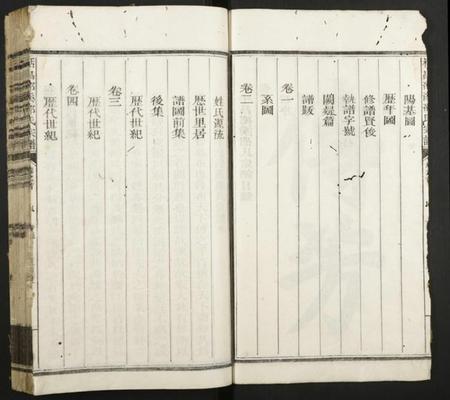 陽基圖
歷年圖
修譜賢俊
執譜字號
闕疑篇
譜跋
卷一
系圖
卷二
姓氏源流
歷世里居
譜圖前集
後集
歷代世紀
卷三
歷代世紀
卷四
歷代世紀